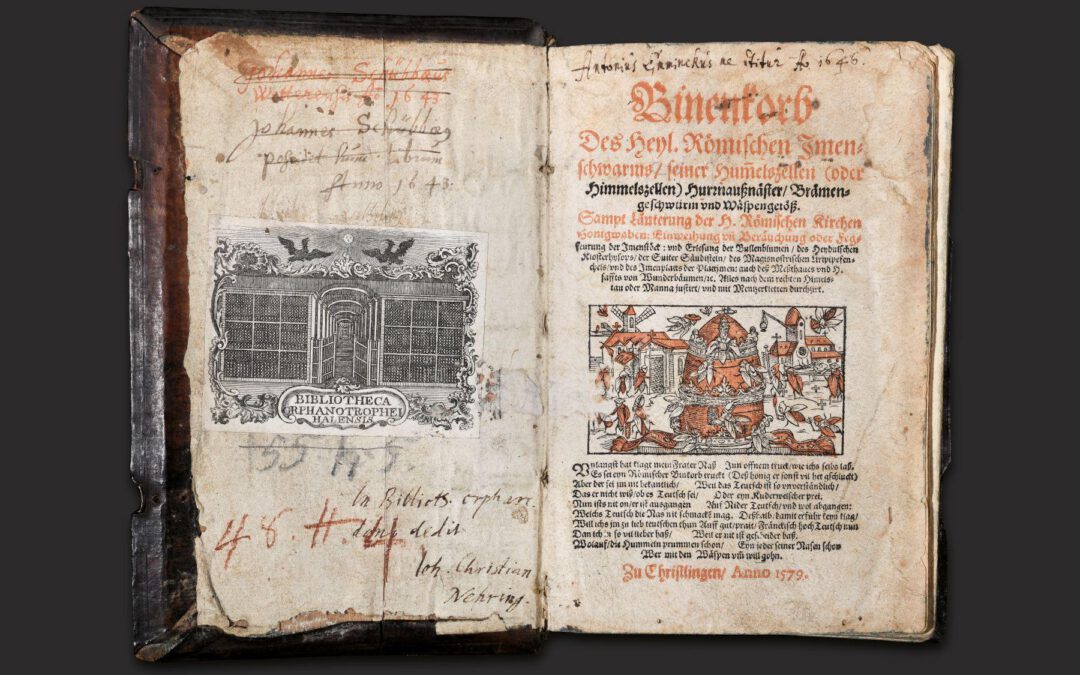 Johannes Schübbäus
Anno 1643
Johannes
possidet hunc librum
Anno 1643.
BIBLIOTHECA
ORPHANOTROPHEI
HALENSIS
In Biblioth. orphan.
dono dedit
48. H. 4
Joh. Christian
Nehring.
Antonius me utitur Ao 1646.
Binenkorb
Des Heyl. Römischen Imen-
schwarms/ seiner Hum̃elszellen (oder
Himmelszellen) Hurnaußnäster/ Brämen-
geschwürm vnd Wäspengetöß.
Sampt Läuterung der H. Römischen Kirchen
Honigwaben: Einweihung vñ Beräuchung oder Feg-
feurung der Imenstöck: vnd Erlesung der Bullenblumen/ des Heydnischen
Klosterhysops/ der Suiter Säudisteln/ des Magisnostrischen
vnd des Imenplatts der Plattimen: auch deß Meßthaues vnd H.
saffts von Wunderbäumen/ꝛc. Alles nach dem rechten Himels-
tau oder Manna justirt/ vnd mit Mentzerkletten durchzirt.
VNlangst hat klagt mein Frater Naß Inn offnem truck/ wie ichs selbs laß,
Es sei eyn Römischer Binkorb truckt (Deß hönig er sonst vil het gschluckt)
Aber der sei jm nit bekantlich/ Weil das Teutsch ist so vnverständlich/
Das er nicht wiß/ ob es Teutsch sei/ Oder eyn Kuderwelscher prei.
Nun ists nit on/ er ist ausgangen Auf Nider Teutsch/ vnd wol abgangen:
Welchs Teutsch die Nas nit schmackt mag. Deßhalb, damit erfuhr keyn klag/
Will ichs jm zu lieb teutschen thun Auff gut/ prait/ Fränckisch hoch Teutsch nun
Dan ich jn so vil lieber haß/ Weil er nit ist gescheider baß.
Wolauf/ die Hummeln prummen schon/ Eyn jeder seiner Nasen schon
Wer mit den Wäspen vm̃ will gohn.
Zu Christlingen/ Anno 1579.